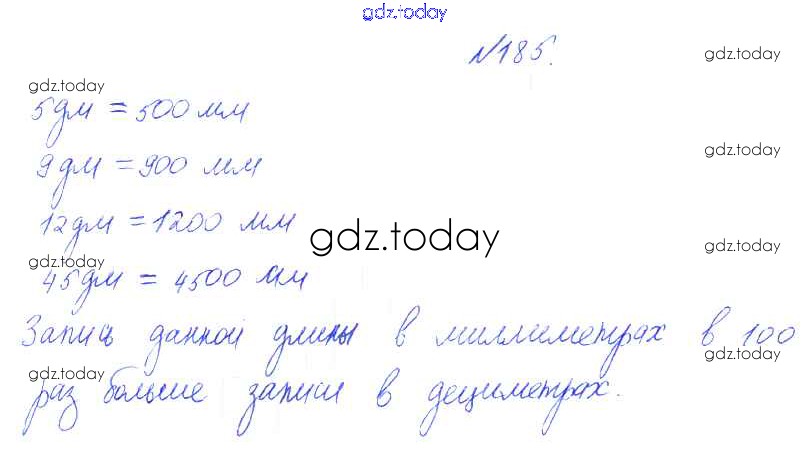 gdz.today
№185.
gdz.today
gdz.today
5дм = 500 мм
gdz.today
9дм = 900 мм
12дм = 1200 мм
gdz.today
gdz.today
gdz.today
45дм = 4500 мм
Запись данной длины в миллиметрах в 100
gdz.today
gdz.today
раз больше записи в дециметрах.